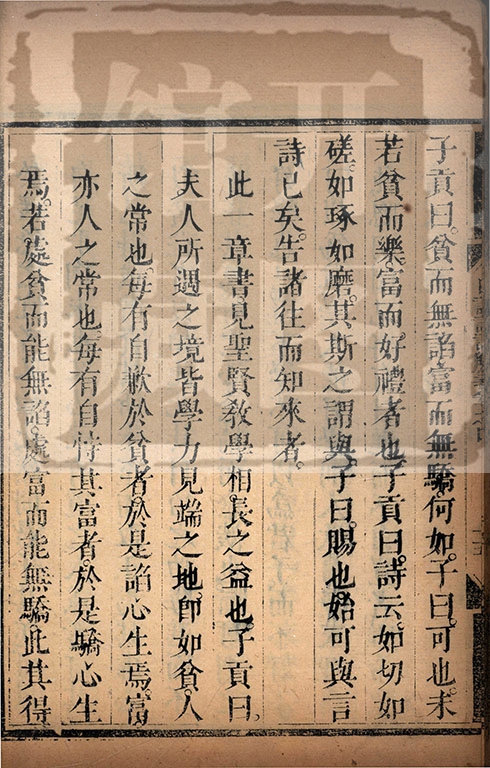 子貢曰。貧而無諂富而無驕何如。子曰。可也。未
若貧而樂富而好禮者也子貢曰。詩云。如切如
磋。如琢如磨。其斯之謂與。子曰。賜也。始可與言
詩已矣。告諸往而知來者。
此一章書見聖賢教學相。長之益也子貢曰。
夫人所遇之境皆學力見端之地。卽如貧。人
之常也每有自歉於貧者。於是諂心生焉。富
亦人之常也每有自恃其富者。於是驕心生
焉。若處貧而能無諂。處富而能無驕此其得